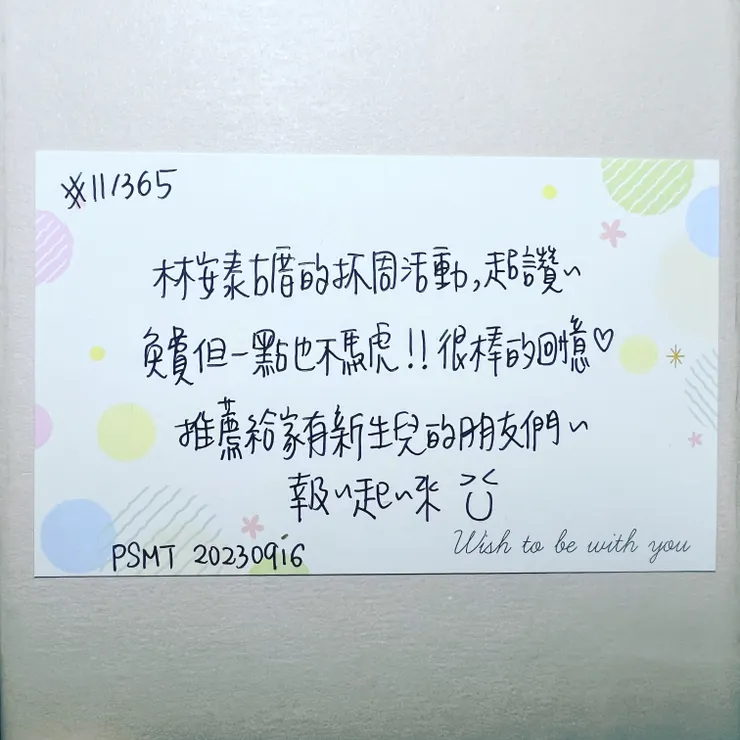 #11/365
林安泰古厝的抓周活動,超讚~
免費但一點也不馬虎!!很棒的回憶♡
推薦給家有新生兒的朋友們~
報~起~來
PSMT 20230916
Wish to be with you